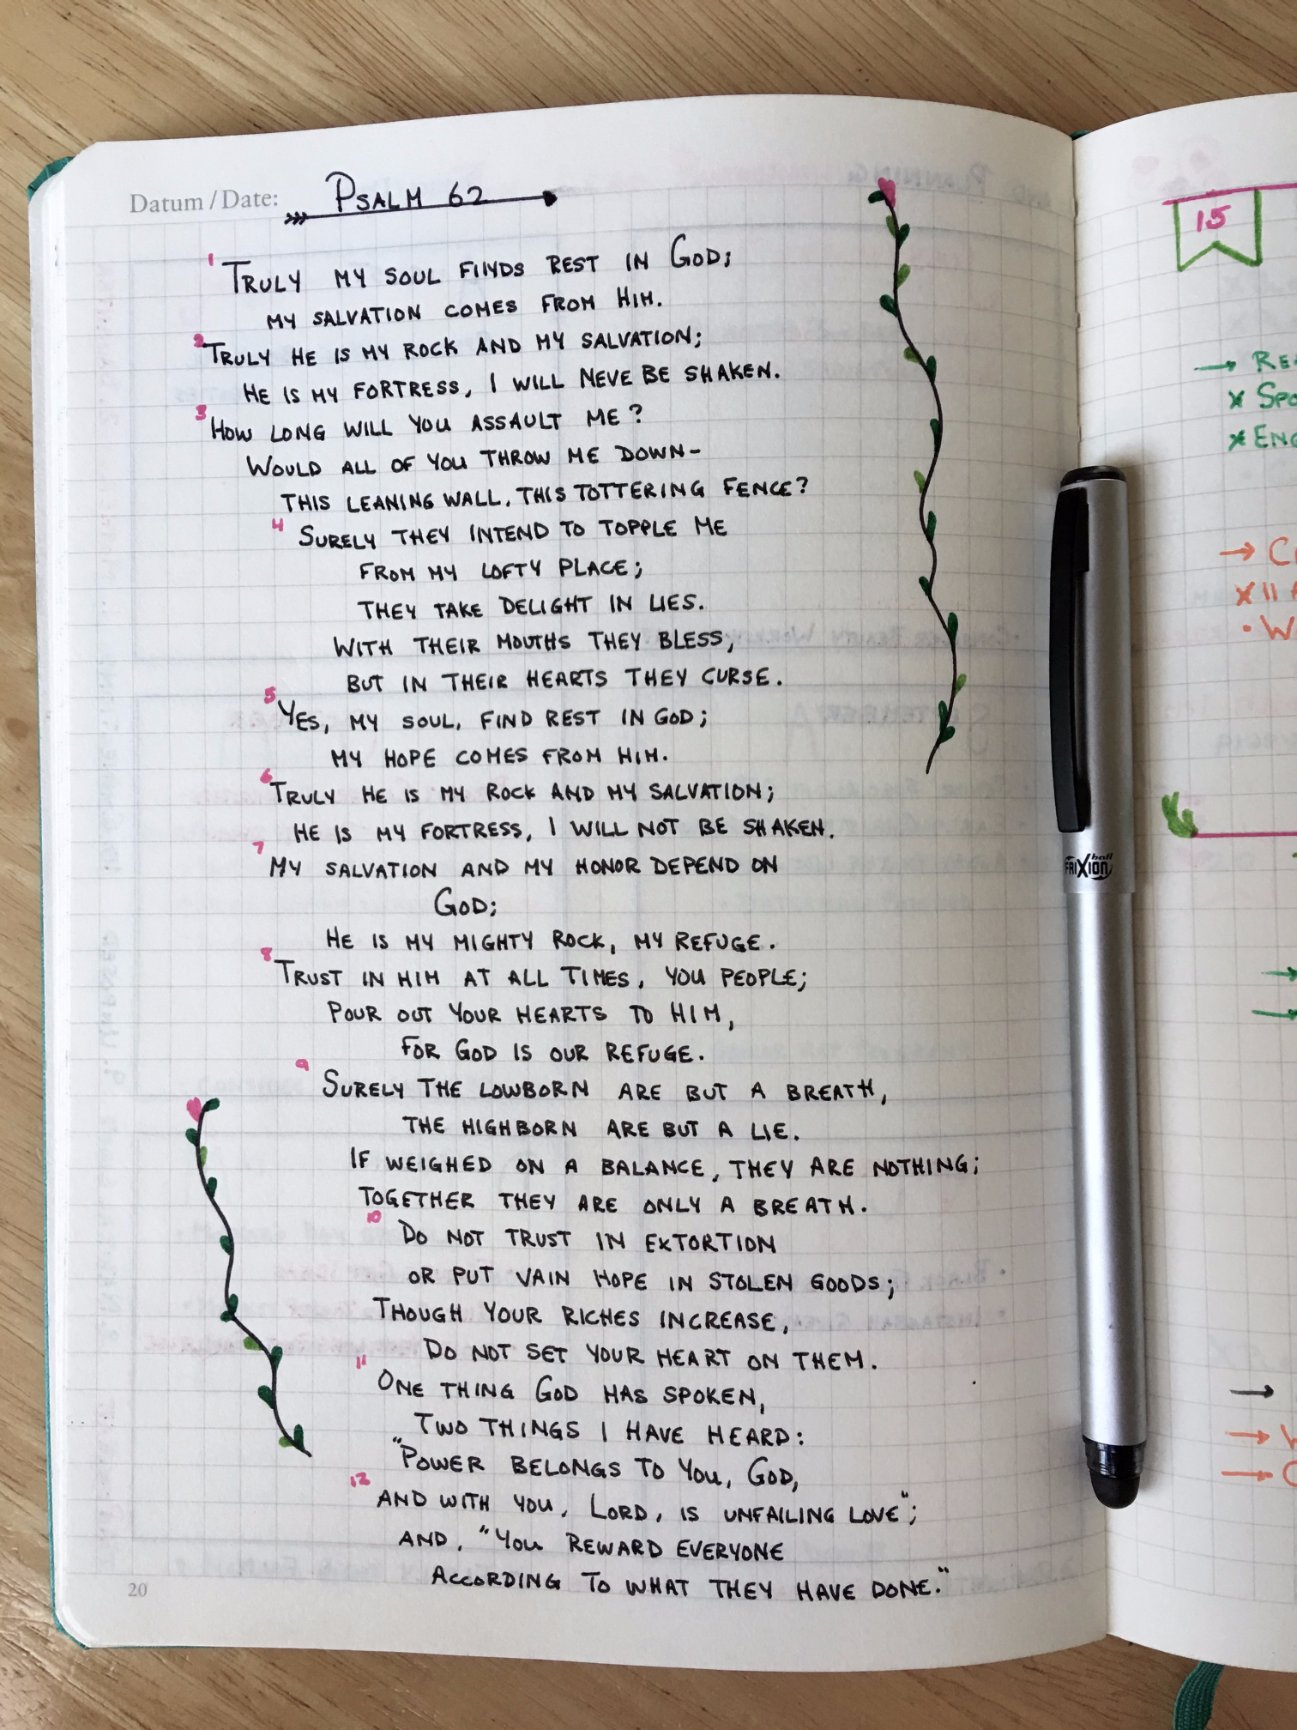 Datum / Date: PSALM 62
1 TRULY MY SOUL FINDS REST IN GOD;
MY SALVATION COMES FROM HIM.
2 TRULY HE IS MY ROCK AND MY SALVATION;
HE IS MY FORTRESS, I WILL NEVE BE SHAKEN.
3 HOW LONG WILL YOU ASSAULT ME?
WOULD ALL OF YOU THROW ME DOWN-
THIS LEANING WALL, THIS TOTTERING FENCE?
4 SURELY THEY INTEND TO TOPPLE ME
FROM MY LOFTY PLACE;
THEY TAKE DELIGHT IN LIES.
WITH THEIR MOUTHS THEY BLESS,
BUT IN THEIR HEARTS THEY CURSE.
5 YES, MY SOUL, FIND REST IN GOD;
MY HOPE COMES FROM HIM.
6 TRULY HE IS MY ROCK AND MY SALVATION;
HE IS MY FORTRESS, I WILL NOT BE SHAKEN.
7 MY SALVATION AND MY HONOR DEPEND ON
GOD;
HE IS MY MIGHTY ROCK, MY REFUGE.
8 TRUST IN HIM AT ALL TIMES, YOU PEOPLE;
POUR OUT YOUR HEARTS TO HIM,
FOR GOD IS OUR REFUGE.
9 SURELY THE LOWBORN ARE BUT A BREATH,
THE HIGHBORN ARE BUT A LIE.
IF WEIGHED ON A BALANCE, THEY ARE NOTHING;
TOGETHER THEY ARE ONLY A BREATH.
10 DO NOT TRUST IN EXTORTION
OR PUT VAIN HOPE IN STOLEN GOODS;
THOUGH YOUR RICHES INCREASE,
DO NOT SET YOUR HEART ON THEM.
11 ONE THING GOD HAS SPOKEN,
TWO THINGS I HAVE HEARD:
"POWER BELONGS TO YOU, GOD,
12 AND WITH YOU, LORD, IS UNFAILING LOVE";
AND, "YOU REWARD EVERYONE
ACCORDING TO WHAT THEY HAVE DONE."
20
FRIXION ball
15